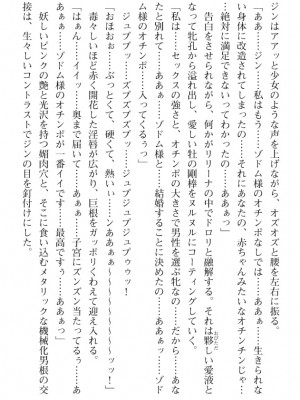 ジンはアアッと少女のような声を上げながら、オズオズと腰を左右に振る。
「ああ……ジン、私はもう……ゾドム様のオチンポなしでは……ああぁ……生きられな
い身体に改造されてしまったの……それにあなたの、赤ちゃんみたいなオチンチンじゃ…
…絶対に満足できないってわかったの……あああぅ」
告白をさせられながら、何かがリリーナの中でドロリと融解する。それは夥しい愛液と
なって牝孔から溢れ出し、愛しい牡の剛棒をヌルヌルにコーティングしていく。
「私は……セックスの強さと、オチンポの大きさで男性を選ぶ牝なの……だから……あな
たと別れて……あああぁ……ゾドム様と……結婚することに決めたの……ああぁ……ゾド
ム様のオチンポ……入ってくるぅっ」
ジュブブッ……ズブズブズブッ……ジュブジュブジュブゥゥッ!
「おほおぉ……ぶっとくて、硬くて、熱いぃ……ンあああぁ~~~~~~~ッ!」
毒々しいほど赤く開花した淫唇が広がり、巨根をガッポリくわえて迎え入れる。
「はぁぁん……イイッ……奥まで届いて……あぁ……子宮にズンズン当たってるぅ……あ
ああぁ……ゾドム様のオチンポが一番イイです……最高ですぅ……ああぁっ」
妖しいピンクの艶と光沢を持つ媚肉穴と、そこに食い込むメタリックな機械化男根の交
接は、生々しいコントラストでジンの目を釘付けにした。